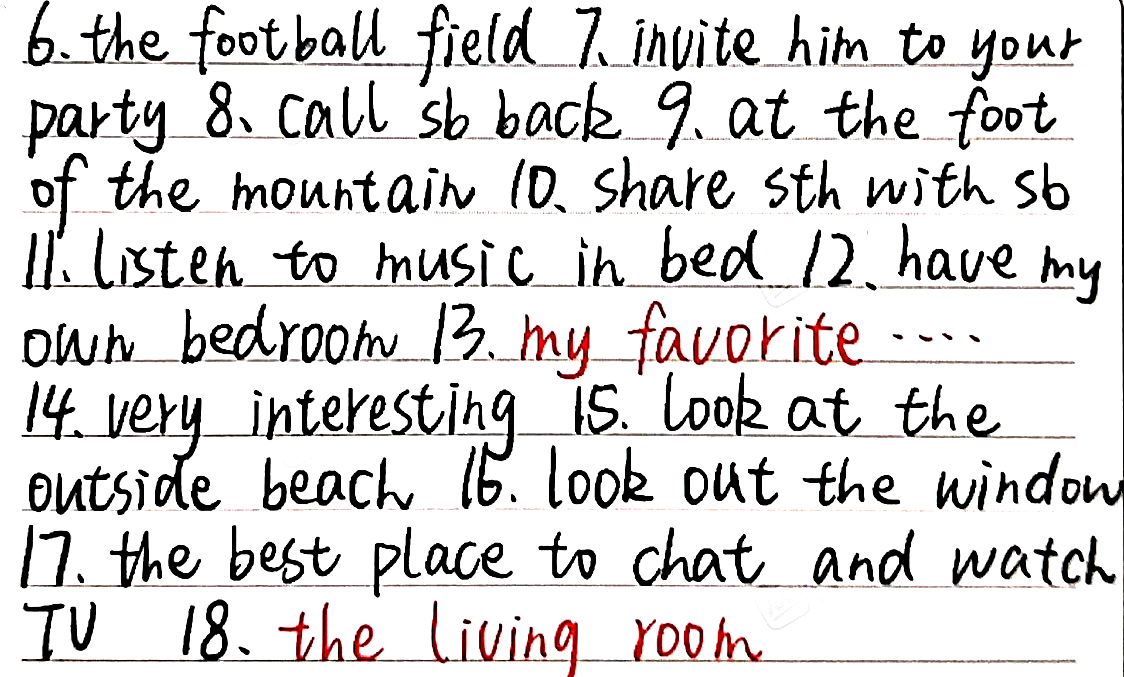 6. the football field 7、invite him to your
party 8、call sb back 9、at the foot
of the mountain 10、share sth with sb
11、listen to music in bed 12、have my
own bedroom 13. my favorite ....
14. very interesting 15. look at the
outside beach 16. look out the window
17. the best place to chat and watch
TV 18、the living room